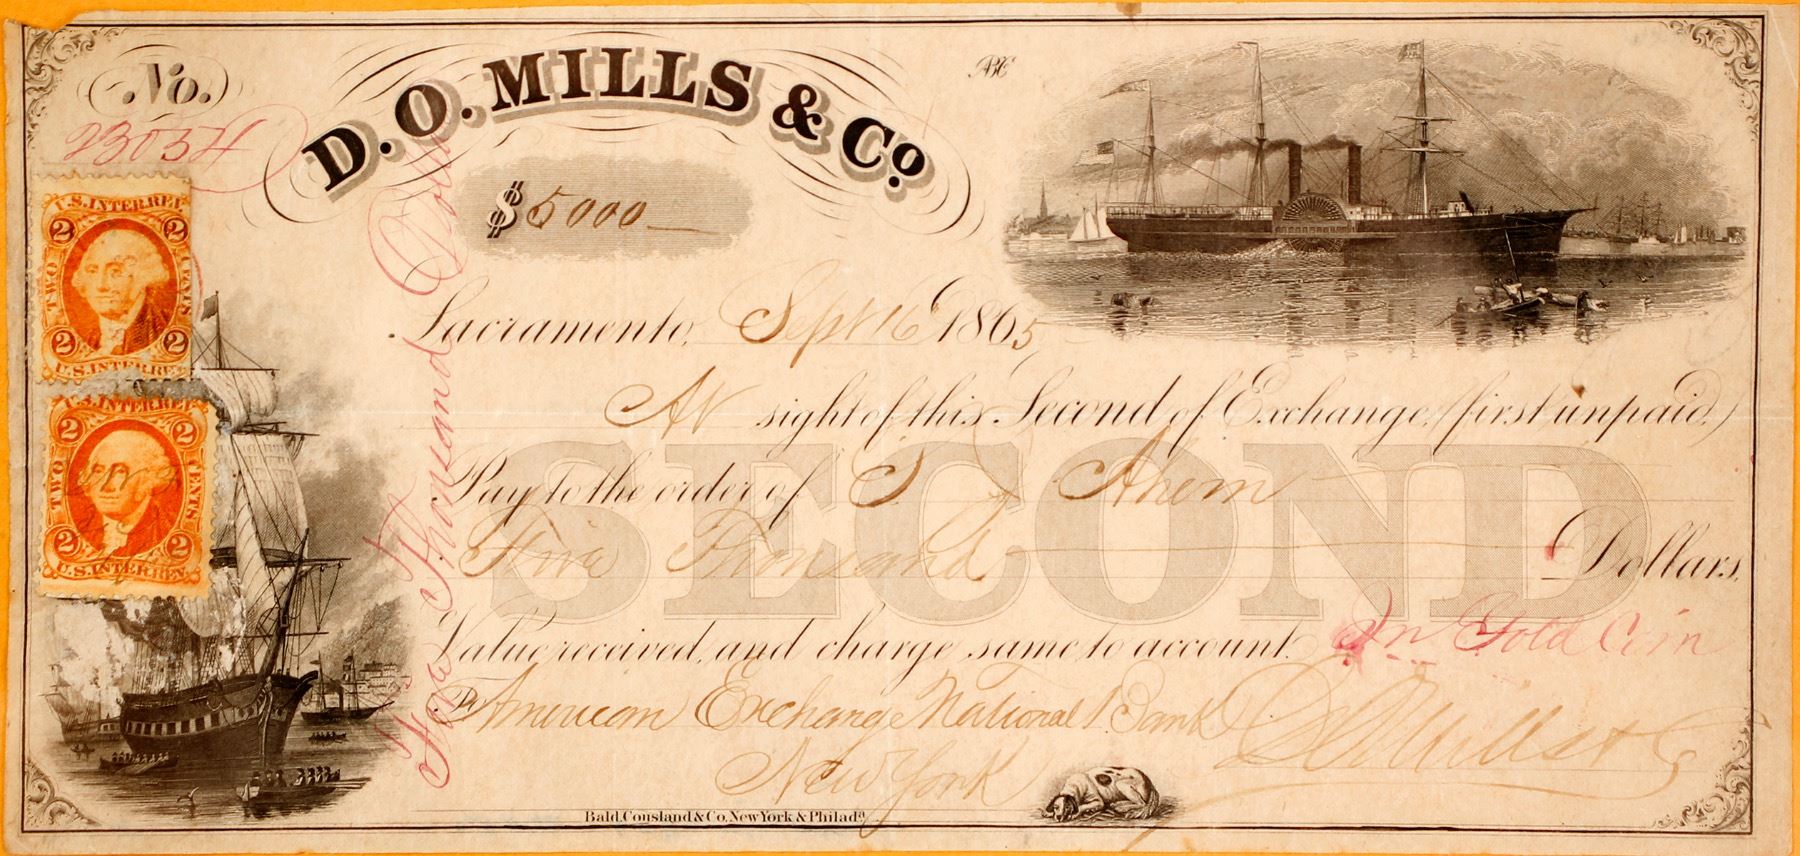 No.
23034
D. O. MILLS & Co.
$ 5000
Sacramento, Sept 16 1865
At sight of this Second of Exchange, (first unpaid,)
SECOND
Pay to the order of
Five Thousand Dollars,
Value received, and charge same to account. In Gold Coin
To American Exchange National Bank D O Mills & Co
New York
Bald, Cousland & Co. New York & Philada.
Five Thousand Dolls
U.S. INTER. REV.
2 2
TWO CENTS
2 2
U.S. INTER. REV.
U.S. INTER. REV.
2 2
TWO CENTS
2 2
U.S. INTER. REV.